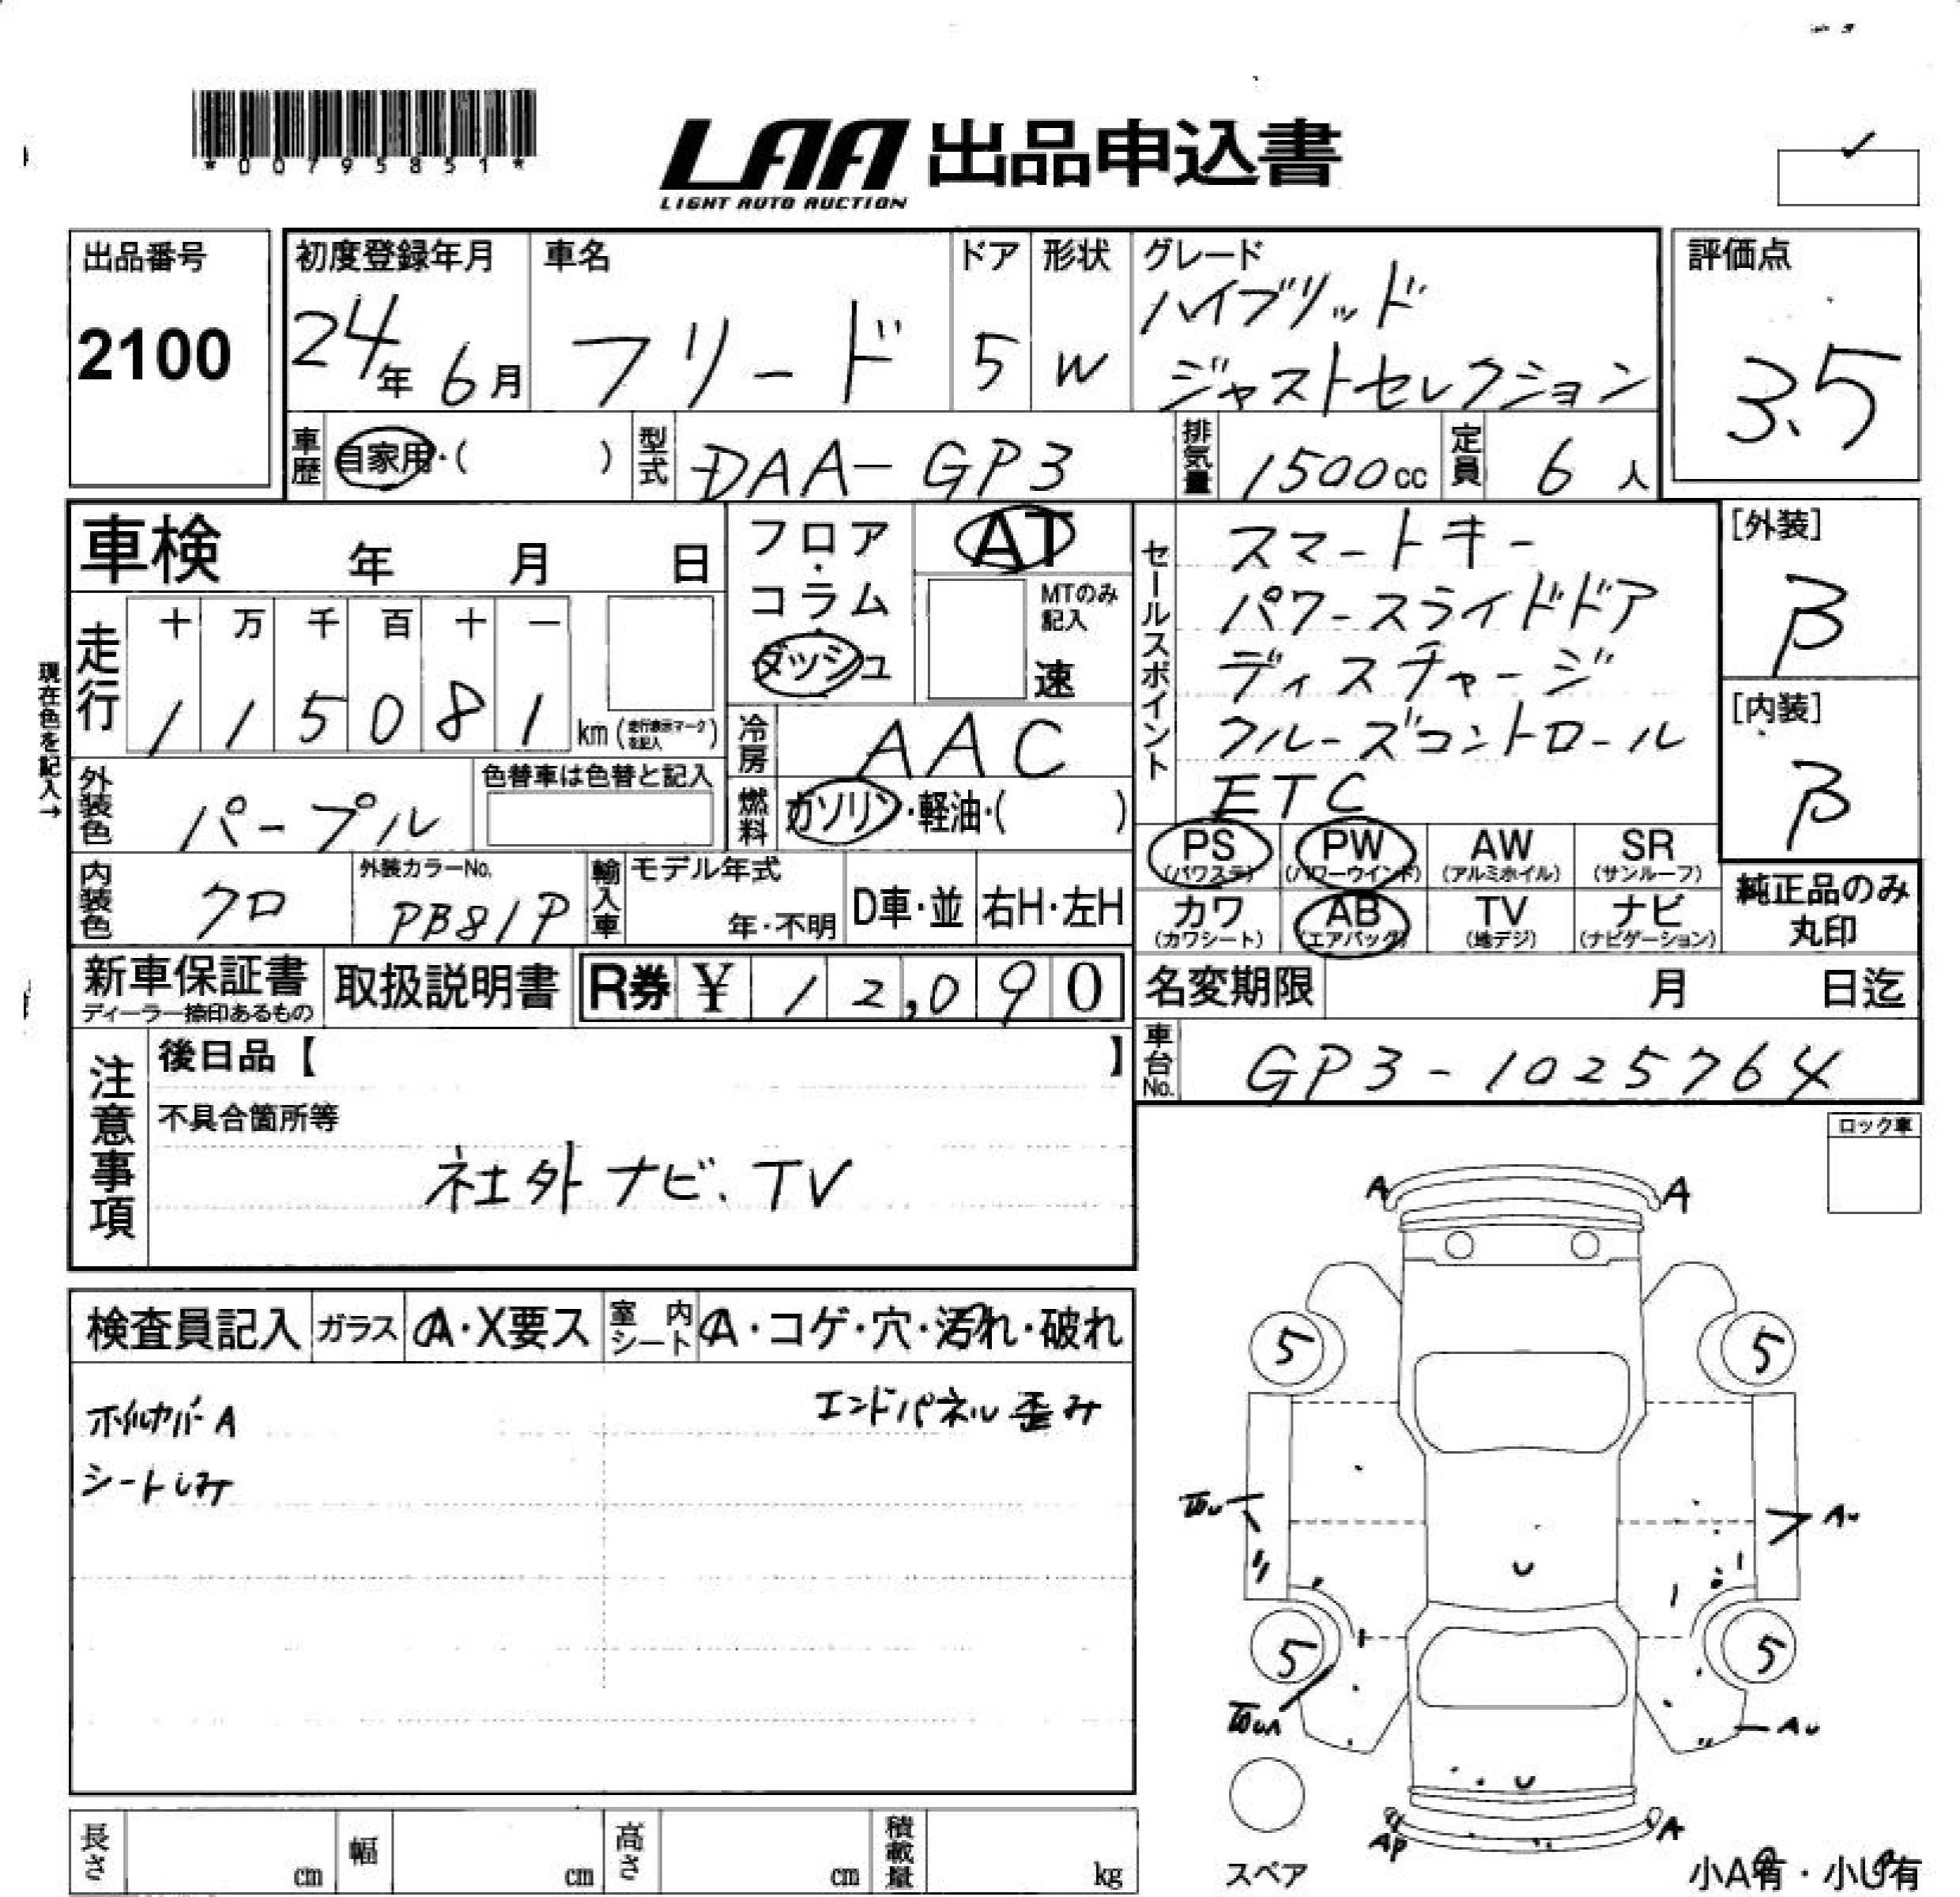 *00795851*
LAA 出品申込書
LIGHT AUTO AUCTION
出品番号
2100
初度登録年月
24年 6月
車名
フリード
ドア
5
形状
W
グレード
ハイブリッド
ジャストセレクション
評価点
3.5
車歴
自家用・( )
型式
DAA-GP3
排気量
1500cc
定員
6人
車検 年 月 日
フロア・
コラム・
ダッシュ
AT
MTのみ
記入
速
セールスポイント
スマートキー
パワースライドドア
ディスチャージ
クルーズコントロール
ETC
[外装]
β
[内装]
β
現在色を記入→
走行
十 万 千 百 十 一
1 1 5 0 8 1 km (走行表示マークを記入)
冷房
AAC
外装色
パープル
色替車は色替と記入
燃料
ガソリン・軽油・( )
PS
(パワステ)
PW
(パワーウインド)
AW
(アルミホイル)
SR
(サンルーフ)
内装色
クロ
外装カラーNo.
PB81P
輸入車
モデル年式
年・不明
D車・並
右H・左H
カワ
(カワシート)
AB
(エアバッグ)
TV
(地デジ)
ナビ
(ナビゲーション)
純正品のみ
丸印
新車保証書
ディーラー捺印あるもの
取扱説明書
R券 ¥ 12,090
名変期限 月 日迄
車台No.
GP3-1025764
注意事項
後日品【 】
不具合箇所等
社外ナビ、TV
ロック車
検査員記入
ガラス
A・X要ス
室内シート
A・コゲ・穴・汚れ・破れ
ホイルカバーA
エンドパネル歪み
シートしみ
A A
5 5
Au
5 5
Au
AP A
スペア
小A有・小U有
長さ cm
幅 cm
高さ cm
積載量 kg